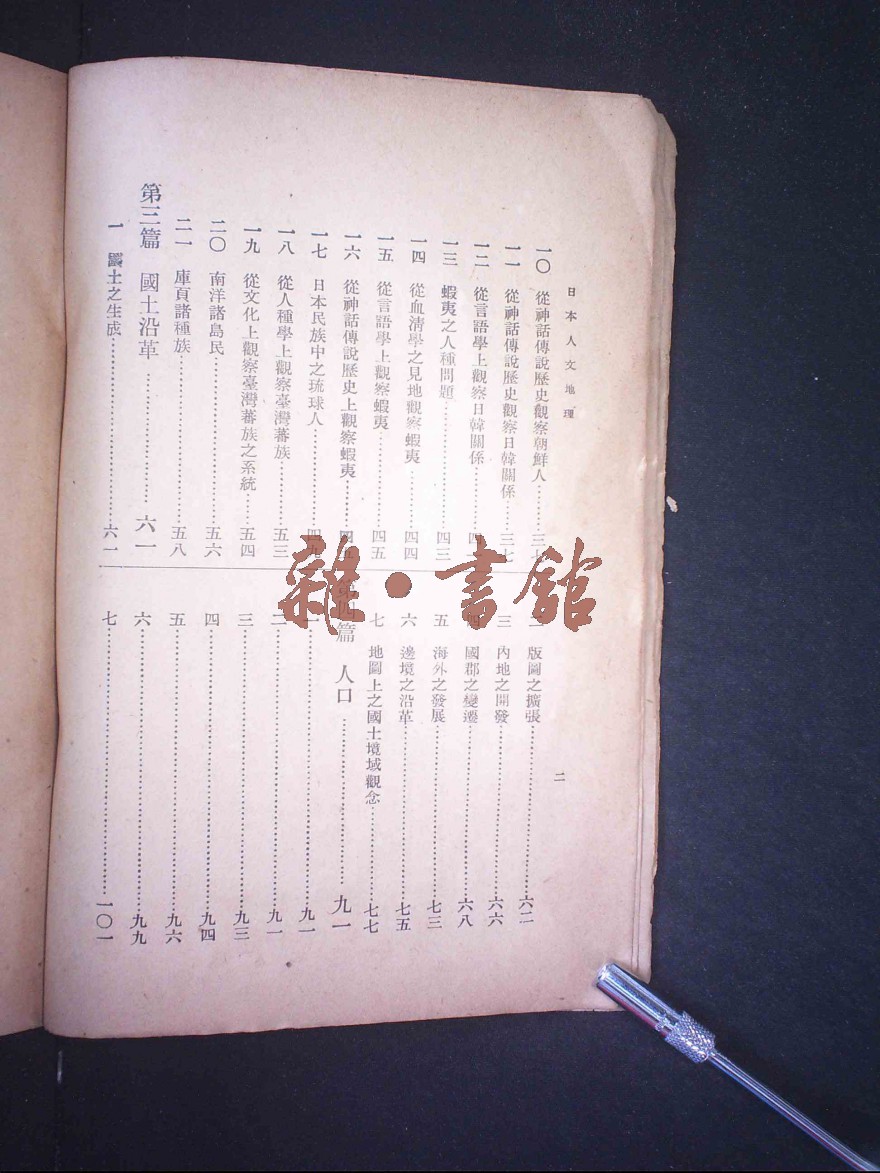 日本人文地理
一〇 從神話傳說歷史觀察朝鮮人……三七
一一 從神話傳說歷史觀察日韓關係……三七
一二 從言語學上觀察日韓關係……四一
一三 蝦夷之人種問題……四三
一四 從血清學之見地觀察蝦夷……四四
一五 從言語學上觀察蝦夷……四五
一六 從神話傳說歷史上觀察蝦夷……
一七 日本民族中之琉球人……四九
一八 從人種學上觀察臺灣蕃族……五三
一九 從文化上觀察臺灣蕃族之系統……五四
二〇 南洋諸島民……五六
二一 庫頁諸種族……五八
第三篇 國土沿革……六一
一 國土之生成……六一
二 版圖之擴張……六二
三 內地之開發……六六
四 國郡之變遷……六八
五 海外之發展……七三
六 邊境之沿革……七五
七 地圖上之國土境域觀念……七七
第四篇 人口……九一
一……九一
二……九一
三……九三
四……九四
五……九六
六……九九
七……一〇一
二
雜·書館